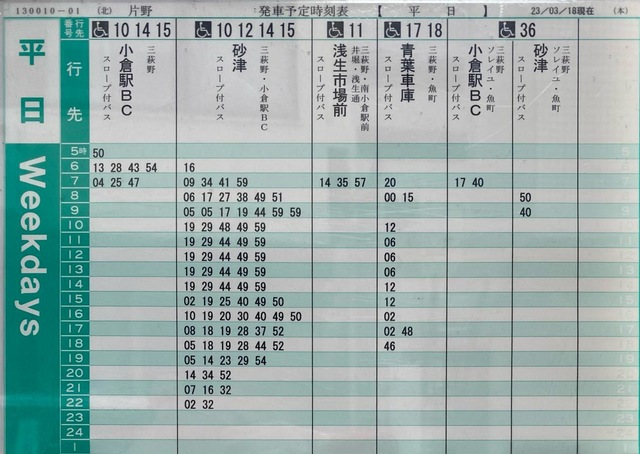 130010-01 (北) 片野 発車予定時刻表 【 平 日 】 23/03/18現在 (本)
行先番号 10 14 15 10 12 14 15 11 17 18 36
平日
Weekdays
行先
小倉駅BC
三萩野
スロープ付バス
砂津
三萩野・小倉駅BC
スロープ付バス
浅生市場前
三萩野・南小倉駅前
井堀・浅生通
スロープ付バス
青葉車庫
三萩野・魚町
スロープ付バス
小倉駅BC
三萩野
ソレイユ・魚町
スロープ付バス
砂津
三萩野
ソレイユ・魚町
スロープ付バス
5時 50
6 13 28 43 54 16
7 04 25 47 09 34 41 59 14 35 57 20 17 40
8 06 17 27 38 49 51 00 15 50
9 05 05 17 19 44 59 59 40
10 19 29 48 49 59 12
11 19 29 44 49 59 06
12 19 29 44 49 59 06
13 19 29 44 49 59 06
14 19 29 44 49 59 12
15 02 19 25 40 49 50 12
16 10 19 20 30 40 49 50 02
17 08 18 19 28 37 52 02 48
18 05 18 19 28 44 52 46
19 05 14 23 29 54
20 14 34 52
21 07 16 32
22 02 32
23
24
1